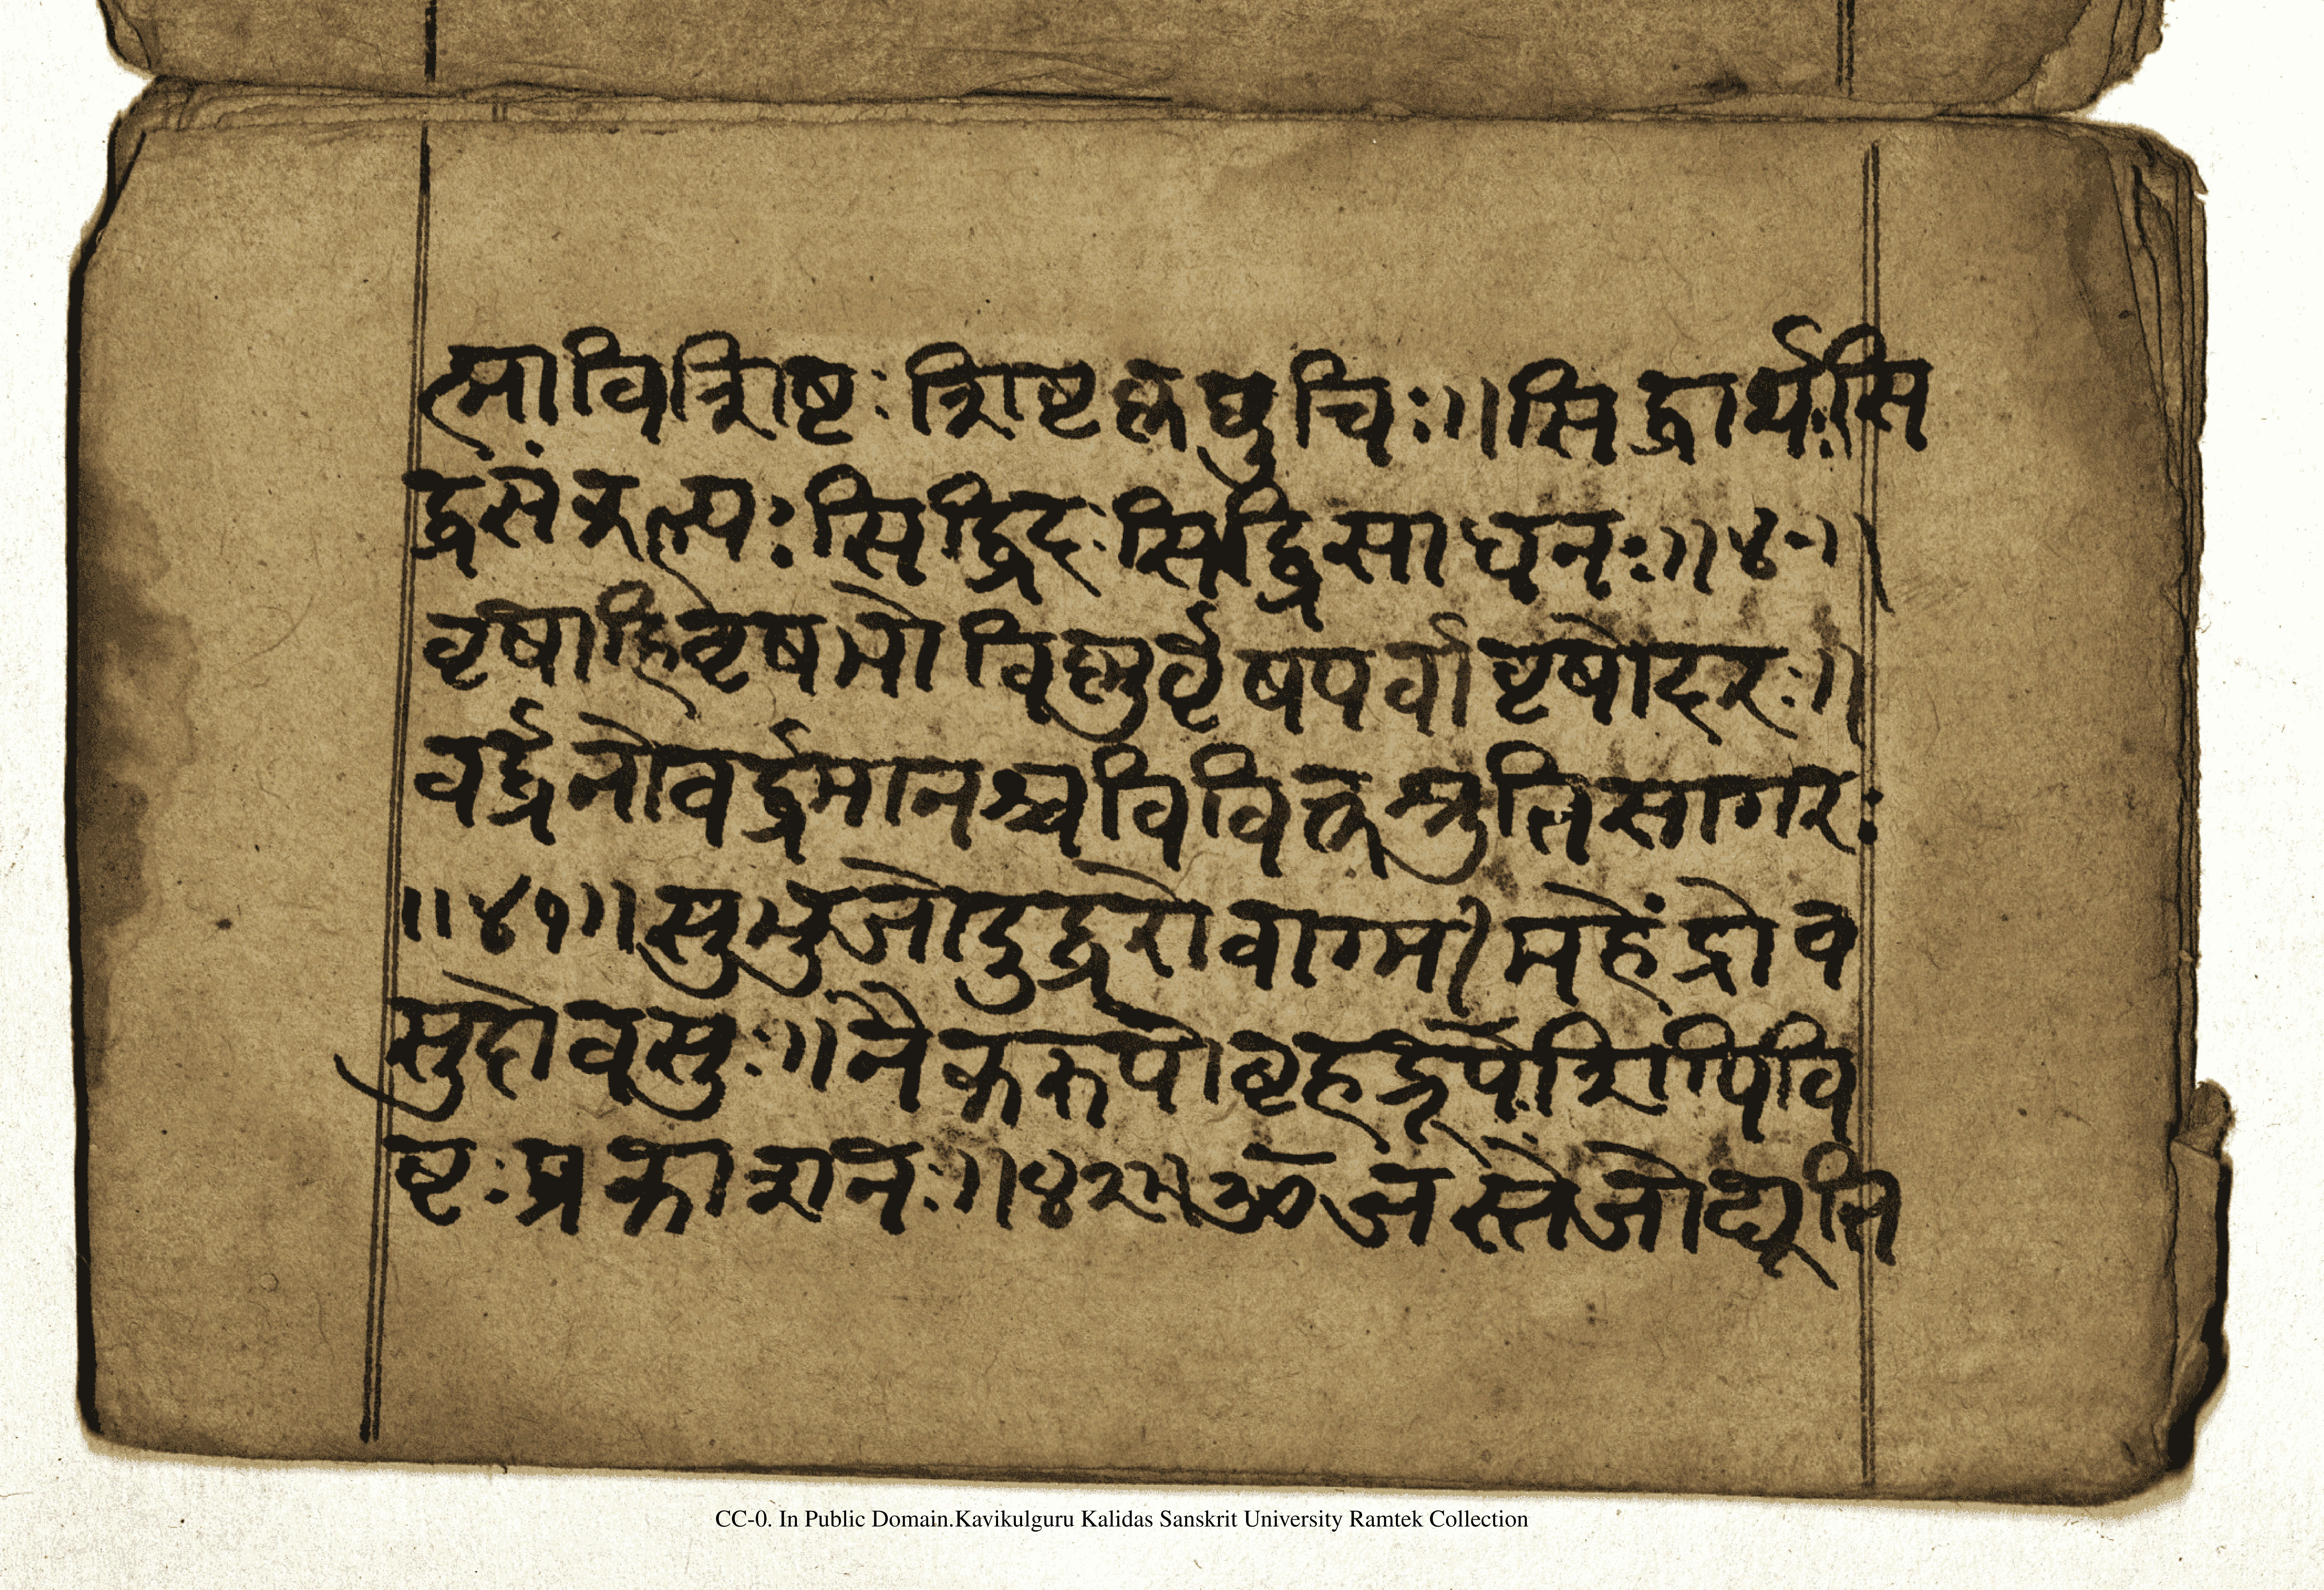 त्माविशिष्टःशिष्टकृछुचिः॥सिद्धार्थःसि
द्धसंकल्पःसिद्धिदःसिद्धिसाधनः॥४०॥
वृषाहिवृषभोविष्णुर्वृषपर्वावृषोदरः॥
वर्द्धनोवर्द्धमानश्चविविक्तश्रुतिसागरः
॥४१॥सुभुजोदुर्द्धरोवाग्मीमहेंद्रोव
सुदोवसुः॥नैकरूपोबृहद्रूपःशिपिवि
ष्टःप्रकाशनः॥४२॥ॐजस्तेजोद्यूति
CC-0. In Public Domain.Kavikulguru Kalidas Sanskrit University Ramtek Collection